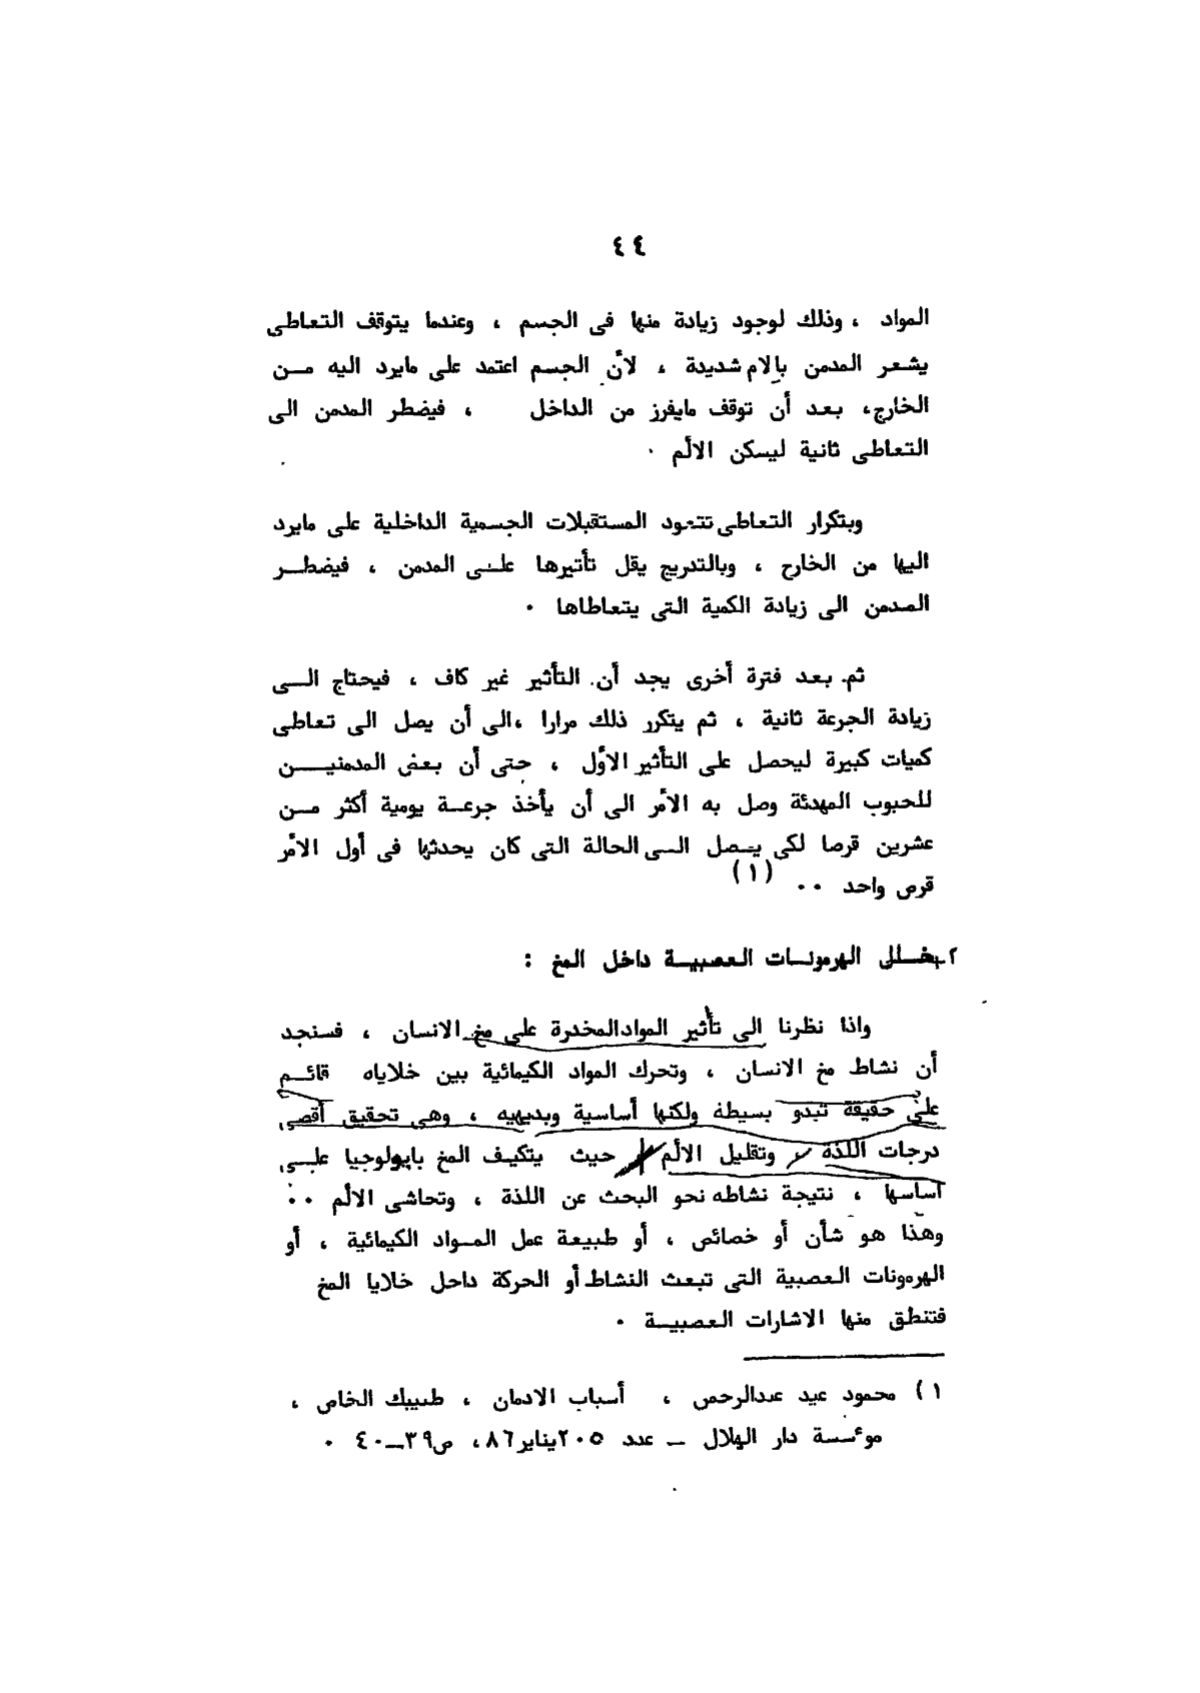 ٤٤
المواد ، وذلك لوجود زيادة منها فى الجسم ، وعندما يتوقف التعاطى
يشعر المدمن بالام شديدة ، لأن الجسم اعتمد على مايرد اليه مـــن
الخارج، بعد أن توقف مايفرز من الداخل ، فيضطر المدمن الى
التعاطى ثانية ليسكن الألم ٠
وبتكرار التعاطى تتعود المستقبلات الجسمية الداخلية على مايرد
اليها من الخارج ، وبالتدريج يقل تأتيرها علـى المدمن ، فيضطـــر
المدمن الى زيادة الكمية التى يتعاطاها ٠
ثم بعد فترة أخرى يجد أن التأثير غير كاف ، فيحتاج الـــى
زيادة الجرعة ثانية ، ثم يتكرر ذلك مرارا ،الى أن يصل الى تعاطى
كميات كبيرة ليحصل على التأثير الأول ، حتى أن بعض المدمنيـــــن
للحبوب المهدئة وصل به الأمر الى أن يأخذ جرعــة يومية أكثر مـــن
عشرين قرصا لكى يصل الـى الحالة التى كان يحدثها فى أول الأمر
قرص واحد ٠٠ (١)
٢ـ خـــلل الهرمونــات العصبيـــة داخل المخ :
واذا نظرنا الى تأثير المواد المخدرة على مخ الانسان ، فسنجد
أن نشاط مخ الانسان ، وتحرك المواد الكيمائية بين خلاياه قائـــم
على حقيقة تبدو بسيطة ولكنها أساسية وبديهيه ، وهى تحقيق أقصى
درجات اللذة ، وتقليل الألم حيث يتكيف المخ بايولوجيا علـــى
أساسها ، نتيجة نشاطه نحو البحث عن اللذة ، وتحاشى الألم ٠٠
وهذا هو شأن أو خصائص ، أو طبيعة عمل المــواد الكيمائية ، أو
الهرمونات العصبية التى تبعث النشاط أو الحركة داخل خلايا المخ
فتنطق منها الاشارات العصبيـــة ٠
١) محمود عيد عبدالرحمن ، أسباب الادمان ، طبيبك الخاص ،
مؤسسة دار الهلال ــ عدد ٢٠٥يناير٨٦، ص٣٩ــ٤٠ ٠